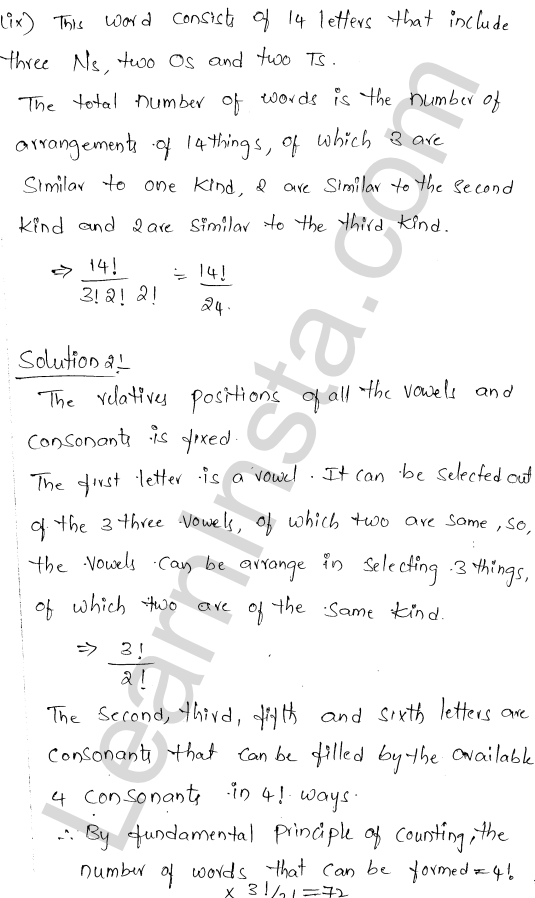 (ix) This word consists of 14 letters that include
three Ns, two Os and two Ts.
The total number of words is the number of
arrangements of 14 things, of which 3 are
Similar to one kind, 2 are similar to the second
kind and 2 are similar to the third kind.
⇒ 14!/3! 2! 2! = 14!/24.
Solution 2!
The relatives positions of all the vowels and
consonants is fixed.
The first letter is a vowel. It can be selected out
of the 3 three vowels, of which two are same, so,
the vowels can be arrange in selecting 3 things,
of which two are of the same kind.
⇒ 3!/2!
The Second, third, fifth and sixth letters are
consonants that can be filled by the available
4 consonants in 4! ways.
∴ By fundamental principle of counting, the
number of words that can be formed = 4!
x 3!/2! = 72
LearnInsta.com